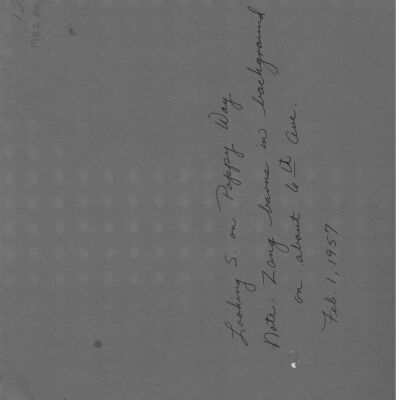 Looking S. on Poppy Way
Note, Zang barns in background
on about 6th ave.
Feb. 1, 1957